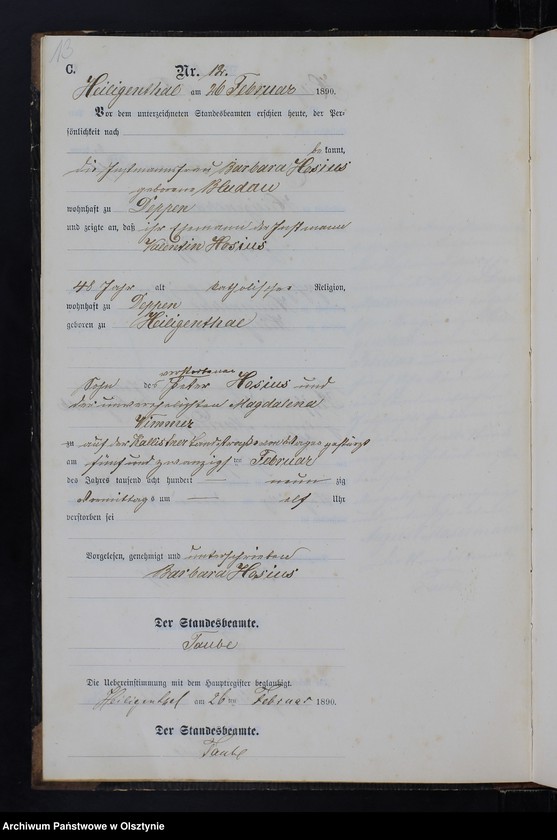 13
C.
Nr. 12.
Heiligenthal am 26 Februar 1890.
Vor dem unterzeichneten Standesbeamten erschien heute, der Per-
sönlichkeit nach
be kannt,
die Instmannfrau Barbara Hosius
geborene Bludau
wohnhaft zu Deppen
und zeigte an, daß ihr Ehemann der Instmann
Valentin Hosius
48 Jahr alt katholischer Religion,
wohnhaft zu Deppen
geboren zu Heiligenthal
verstorbenen
Sohn des Peter Hosius und
der unverehelichten Magdalena
Wimmer
zu auf der Kallistner Landstraße vom Wagen gestürzt
am fünf und zwanzigsten Februar
des Jahres tausend acht hundert neun zig
Vormittags um elf Uhr
verstorben sei
Vorgelesen, genehmigt und unterschrieben
Barbara Hosius
Der Standesbeamte.
Taube
Die Uebereinstimmung mit dem Hauptregister beglaubigt.
Heiligenthal am 26 ten Februar 1890.
Der Standesbeamte.
Taube
Archiwum Państwowe w Olsztynie